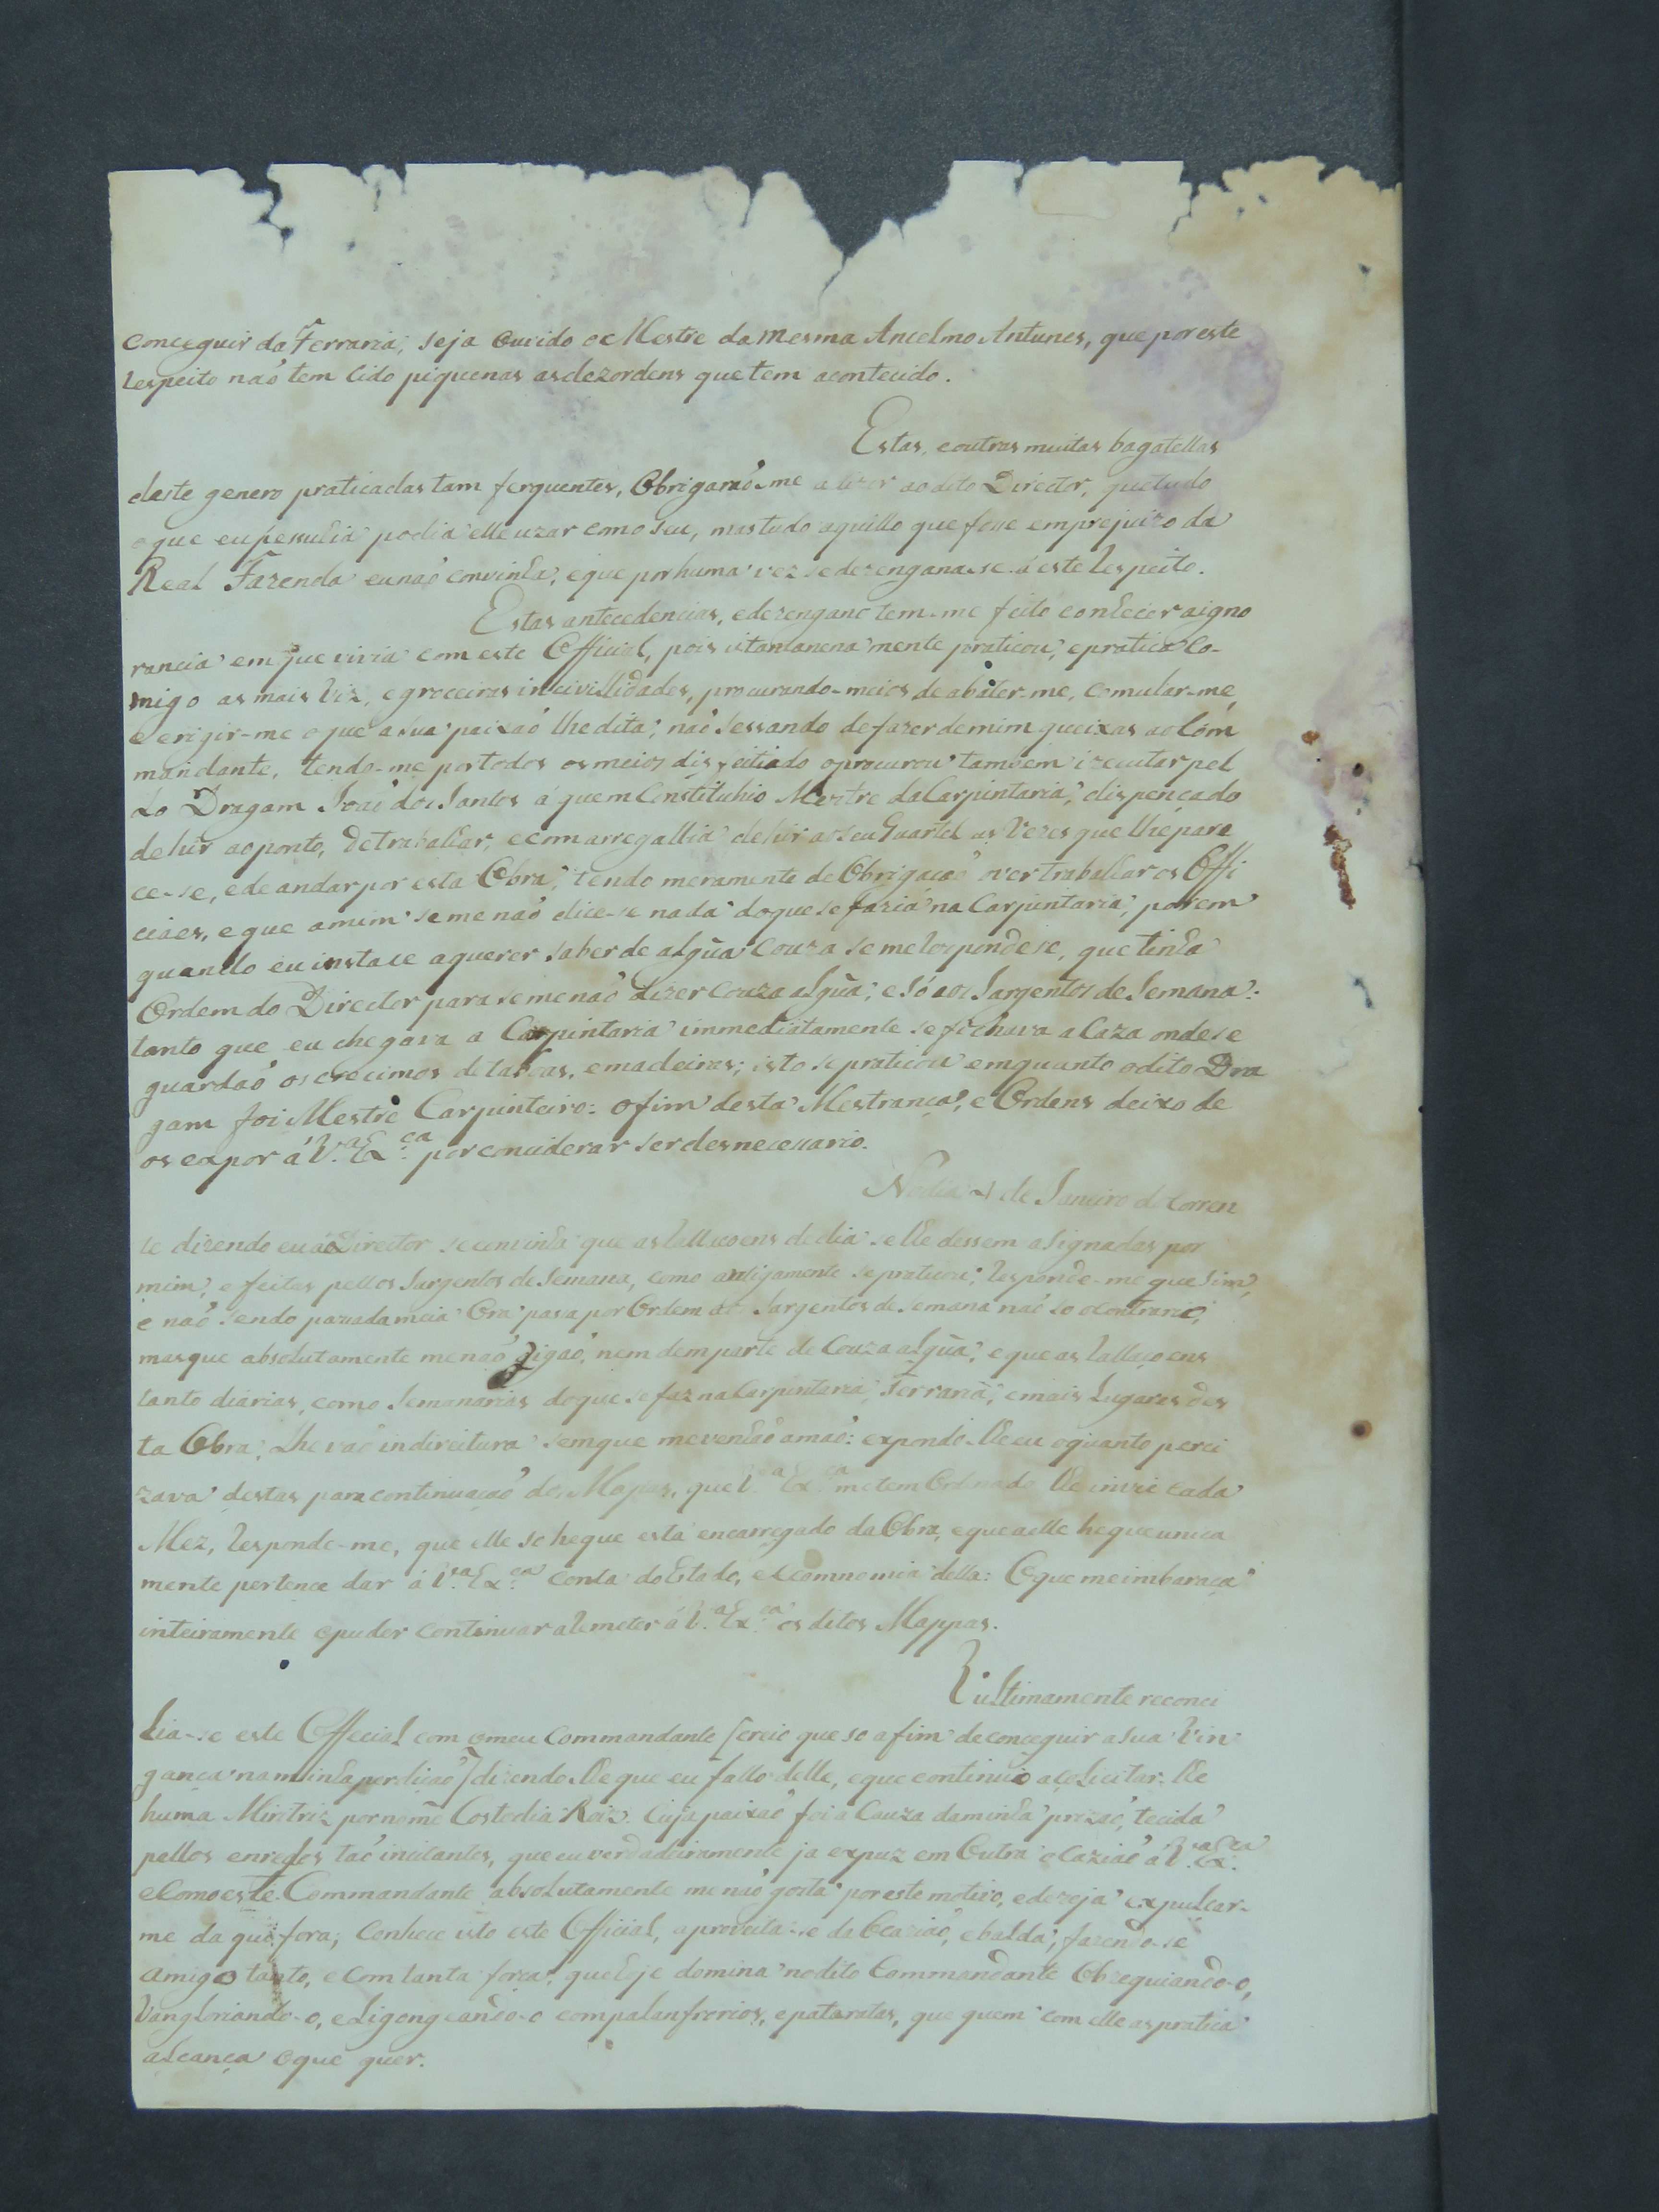 conceguir da Ferraria; seja ouvido o Mestre da mesma Ancelmo Antunes, que por este
respeito naõ tem cido piquenas as dezordens que tem acontecido.
Estas, e outras muitas bagatellas
deste genero praticadas tam ferquentes, Obrigaraõ-me a dizer ao dito Director, que tudo
o que eu pessuhia podia elle uzar como seu, mas tudo aquillo que fosse em prejuizo da
Real Fazenda eu naõ convinha, e que por huma vez se dezengana-se á este respeito.
Estas antecedencias, e dezengano tem-me feito conhecer a igno
rancia em que vivia com este Official, pois istantanena mente praticou, e pratica Co-
migo as mais viz, e groceiras incivillidades, procurando-meios de abater-me, comular-me,
e erigir-me o que a sua paixaõ lhe dita; naõ sessando de fazer de mim queixas ao Com
mandante, tendo-me por todos os meios dis o procurou tambem izcuitar pel
lo Dragam Joaõ dos Santos á quem Constituhio Mestre da Carpintaria, dispençado
de hir ao ponto, de trabalhar, e com arregallia de hir ao seu Quartel as vezes que lhe pare
ce-se, e de andar por esta Obra, tendo meramente de Obrigaçaõ ver trabalhar os Offi
ciaes, e que a mim se me naõ dice-se nada do que se fazia na Carpintaria, porem
quando eu instace a querer saber de algũa Couza se me respondese, que tinha
Ordem do Director para se me naõ dizer Couza algũa; e só aos Sargentos de Semana:
tanto que eu chegava a Carpintaria immediatamente se fichava a Caza onde se
guardaõ os crecimos de taboas, e madeiras; isto se praticou emquanto o dito Dra
gam foi Mestre Carpinteiro: o fim desta Mestrança, e Ordens deixo de
os expor á V.ª Ex.ca por conciderar ser desnecessario.
No dia 4 de Janeiro do Corren
te dizendo eu ao Director se convinha que as rellaçoens de dia se lhe dessem asignadas por
mim, e feitas pellos Sargentos de Semana, como antigamente se praticou; responde-me que sim,
e naõ sendo passada meia Ora passa por Ordem aos Sargentos de Semana naõ so o contrario,
mas que absolutamente me naõ digaõ, nem dem parte de Couza algũa, e que as rallaçoens
tanto diarias, como Semanarias do que se faz na Carpintaria, Ferraria, e mais Lugares des
ta Obra, lhe vaõ in direitura sem que me venhaõ a maõ: expondo-lhe eu o quanto perci
zava destas para continuaçaõ dos Mapas, que V.ª Ex.ca me tem Ordenado lhe invie cada
Mez, responde-me, que elle so he que está encarregado da Obra, e que a elle he que unica
mente pertence dar á V.ª Ex.ca conta do Estado, e Economia della: O que me imbaraça
inteiramente o puder continuar a remeter á V.ª Ex.ca os ditos Mappas.
ultimamente reconci
lia-se este Official com o meu Commandante [creio que so a fim de conceguir a sua vin
gança na minha perdiçaõ] dizendo-lhe que eu fallo delle, e que continuo a çolicitar-lhe
huma Miritriz por nome Costodia Roiz. Cuja paixaõ foi a Cauza da minha prizaõ, tecida
pellos enredos taõ incitantes, que eu verdadeiramente ja expuz em Outra Ocaziaõ á V.ª Ex.ca
e Como este Commandante absolutamente me naõ gosta por este motivo, e dezeja expulçar-
me da qui fora; Conhece isto este Official, aproveita-se da Ocaziaõ, e balda, fazendo-se
amigo tanto, e com tanta força, que hoje domina no dito Commandante Obzequiando-o,
vangloriando-o, e Ligongeando-o com palanfrorios, e pataratas, que quem com elle as pratica
alcança o que quer.